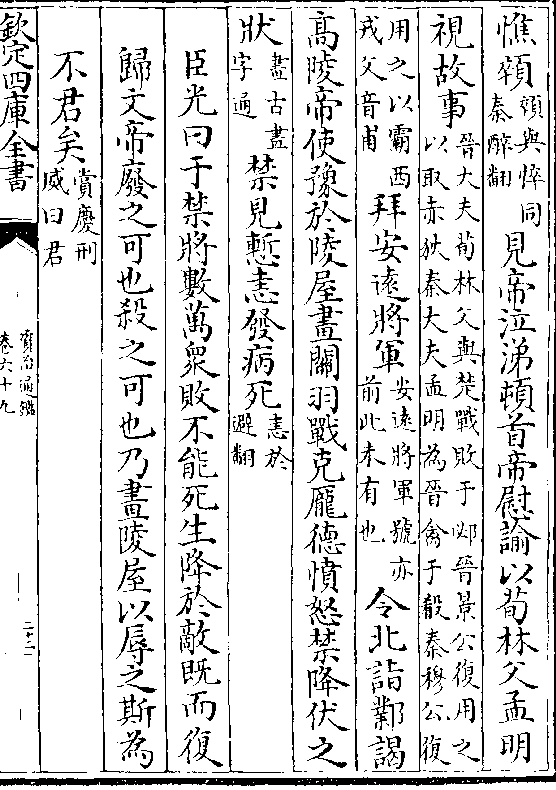 憔顇顇與悴同秦醉翻見帝泣涕頓首帝慰諭以荀林父孟明
視故事晉大夫荀林父與楚戰敗于邲晉景公復用之以取赤狄秦大夫孟明為晉禽于殽秦穆公復
用之以霸西戎父音甫拜安遠將軍安遠將軍號亦前此未有也令北詣鄴謁
高陵帝使豫於陵屋畫關羽戰克龐德憤怒禁降伏之
狀畫古畫字通禁見慙恚發病死恚於避翻
臣光曰于禁將數萬衆敗不能死生降於敵既而復
歸文帝廢之可也殺之可也乃畫陵屋以辱之斯為
不君矣賞慶刑威曰君
欽定四庫全書
資治通鑑
卷六十九
二十二